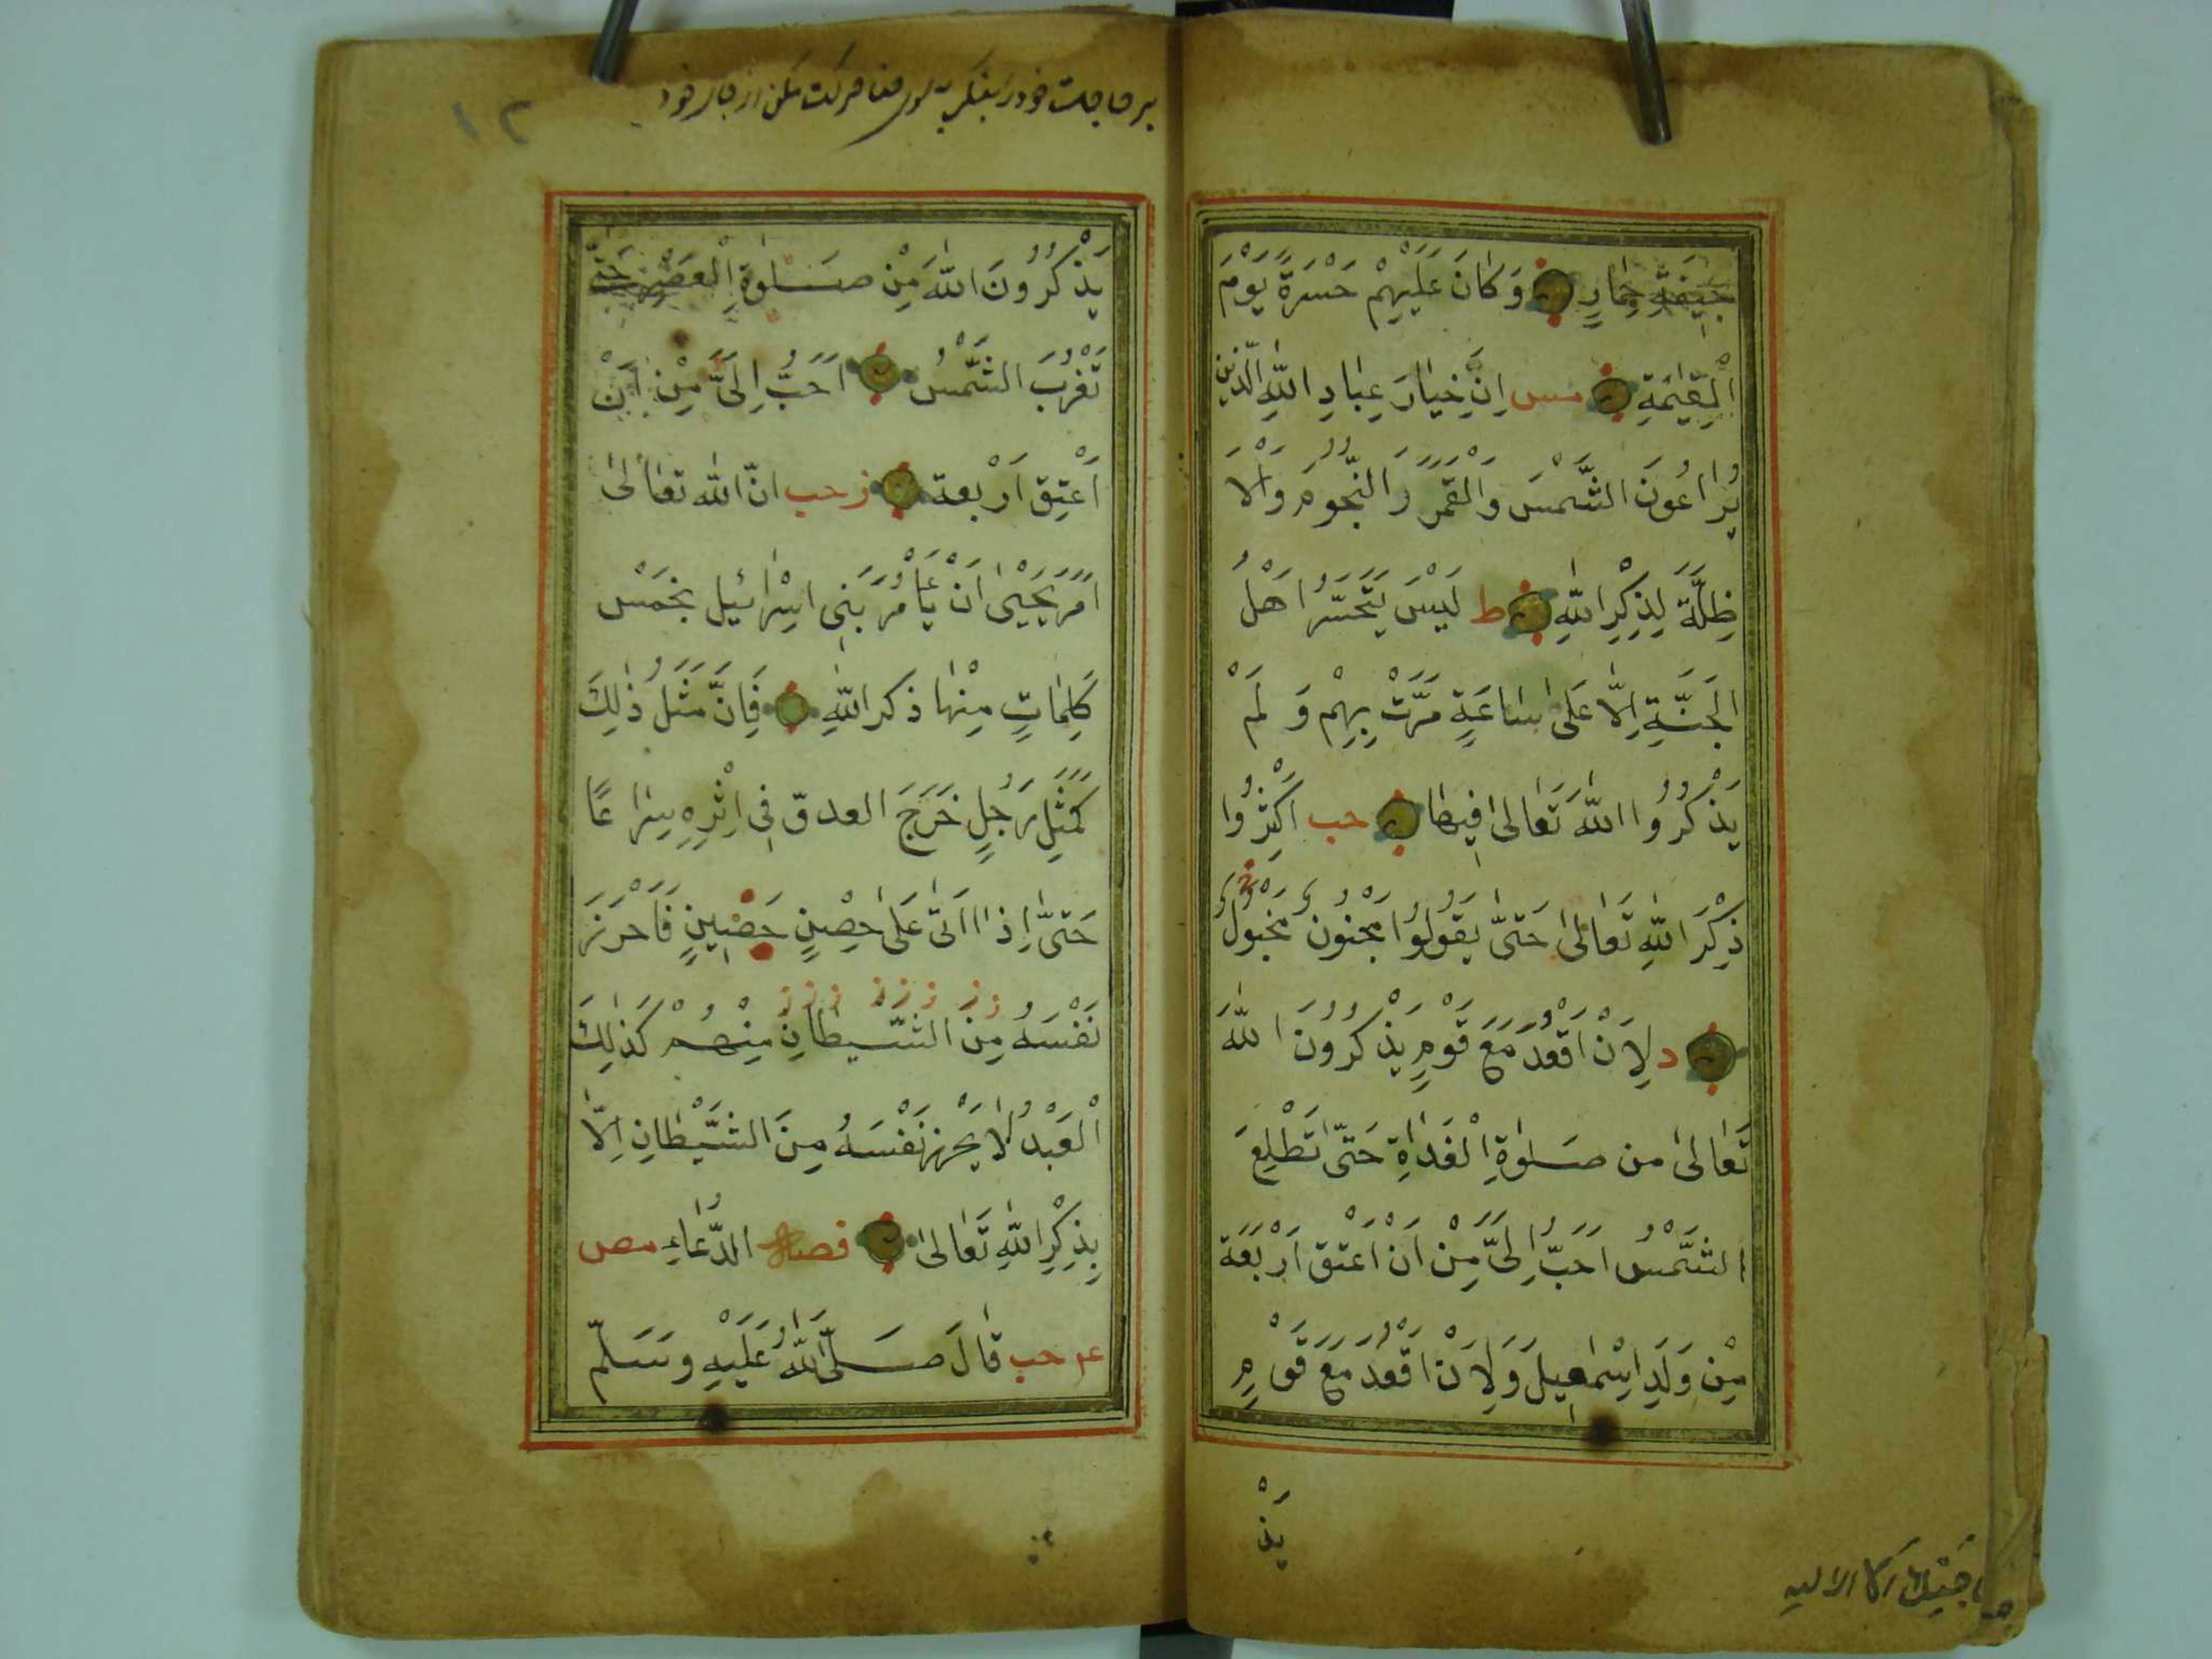 جِيفَةِ حِمَارٍ وَكَانَ عَلَيْهِمْ حَسْرَةً يَوْمَ
الْقِيٰمَةِ مس اِنَّ خِيَارَ عِبَادِ اللّٰهِ الَّذِينَ
يُرَاعُونَ الشَّمْسَ وَالْقَمَرَ وَالنُّجُومَ وَالْاَ
ظِلَّةَ لِذِكْرِ اللّٰهِ ط لَيْسَ يَتَحَسَّرُ اَهْلُ
الْجَنَّةِ اِلَّا عَلٰى سَاعَةٍ مَرَّتْ بِهِمْ وَلَمْ
يَذْكُرُوا اللّٰهَ تَعَالٰى فِيهَا حب اَكْثِرُوا
ذِكْرَ اللّٰهِ تَعَالٰى حَتّٰى يَقُولُوا مَجْنُونٌ مَخْبُولٌ
د لِاَنْ اَقْعُدَ مَعَ قَوْمٍ يَذْكُرُونَ اللّٰهَ
تَعَالٰى من صَلٰوةِ الْغَدَاةِ حَتّٰى تَطْلِعَ
الشَّمْسُ اَحَبُّ اِلَىَّ مِنْ اَنْ اَعْتِقَ اَرْبَعَة
مِنْ وَلَدِ اِسْمٰعِيلَ وَلِاَنْ اَقْعُدَ مَعَ قَوْمٍ
يَذْ
١٢
يَذْكُرُونَ اللّٰهَ مِنْ صَلٰوةِ الْعَصْرِ حَتّٰى
تَغْرُبَ الشَّمْسُ اَحَبُّ اِلَىَّ مِنْ اَنْ
اَعْتِقَ اَرْبَعة ز حب انّ اللّٰه تعَالٰى
اَمَرَ يَحْيٰى اَنْ يَأْمُرَ بَنِى اِسْرَائيل بخَمْس
كَلِمَاتٍ مِنْهَا ذكر اللّٰهِ فَاِنَّ مَثَلُ ذٰلِكَ
كَمَثَلِ رَجُلٍ خَرَجَ العدوّ فِى اِثْرِهِ سِرَاعًا
حَتّٰى اِذَا اَتٰى عَلٰى حِصْنٍ حَصِينٍ فَاَحْرَزَ
نَفْسَهُ مِنَ الشَّيطَانِ مِنْهُمْ كَذٰلِكَ
الْعَبْدُ لَا يَحْرِزُ نَفْسَهُ مِنَ الشَّيْطَانِ اِلَّا
بِذِكْرِ اللّٰهِ تَعَالٰى فصل الدُّعَاءِ مص
عه حب قَالَ صَلَّى اللّٰهُ عَلَيْهِ وَسَلَّمَ